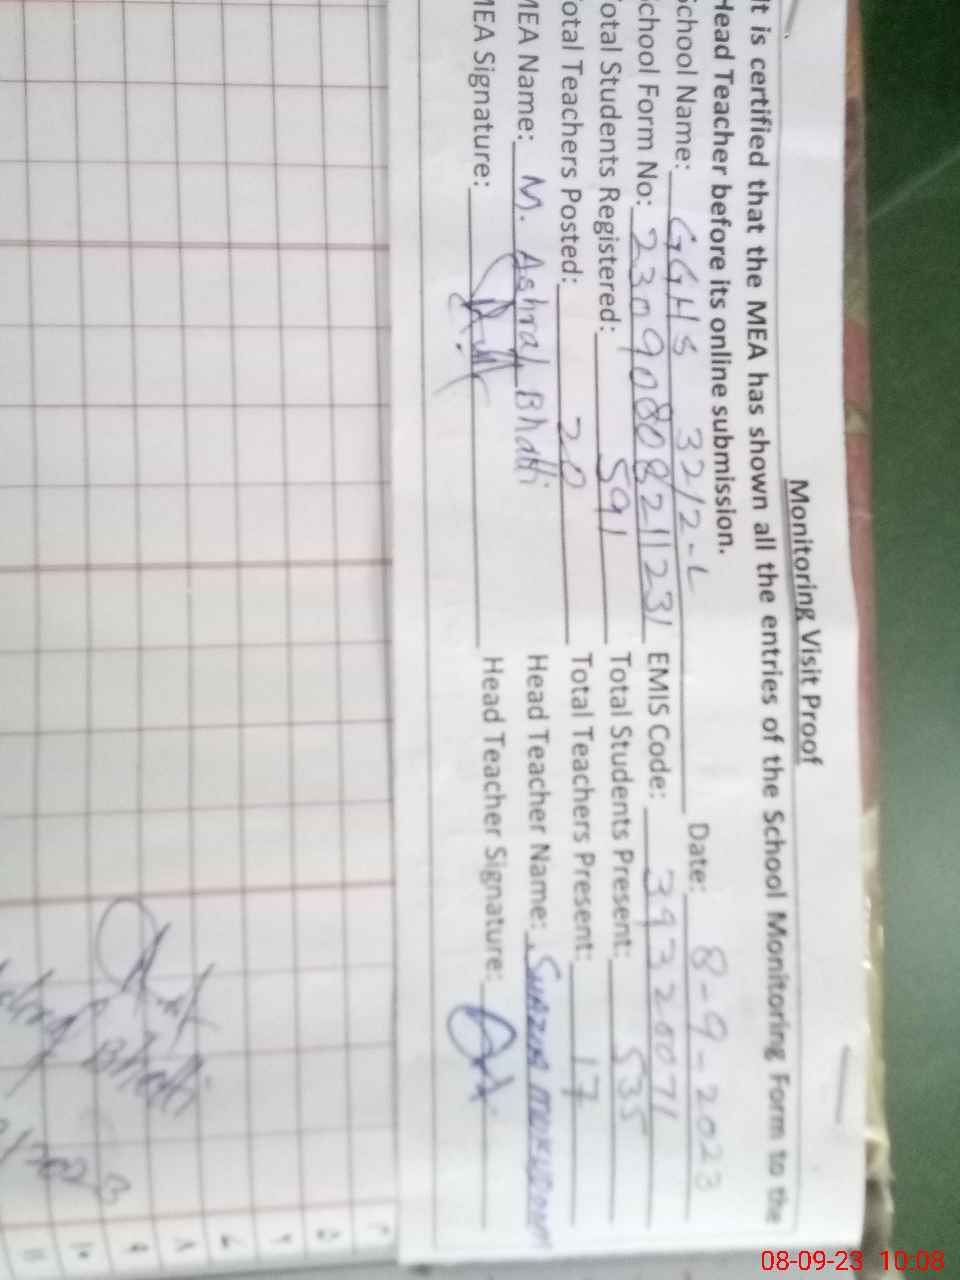 Monitoring Visit Proof
It is certified that the MEA has shown all the entries of the School Monitoring Form to the
Head Teacher before its online submission.
School Name: GGHS 32/2-L Date: 8-9-2023
School Form No: 2309080821123 EMIS Code: 39320071
Total Students Registered: 591 Total Students Present: 535
Total Teachers Posted: 20 Total Teachers Present: 17
MEA Name: M. Ashraf Bhatti Head Teacher Name:
MEA Signature: Head Teacher Signature:
Bhatti
08-09-23 10:08